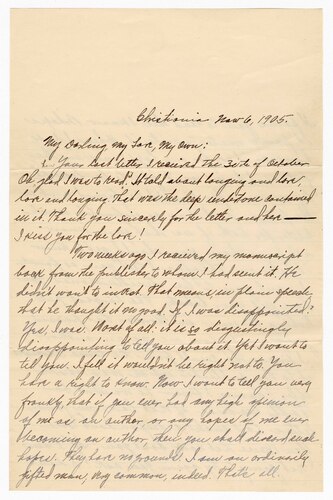 Christiania Nov 6, 1905.
My Darling, my Love, My Own:
Your last letter I received the 30th of October
Oh, glad I was to read. It told about longing and love,
love and longing, that was the deep undertone contained
in it. Thank you sincerely for the letter and here —
I kiss you for the love!
Two weeks ago I received my manuscript
back from the publisher to whom I had sent it. He
didn't want to That means in plain speech
that he thought it no good. If I was disappointed?
Yes, I was. Most of all: it is so disgustingly
disappointing to tell you about it. Yet I want to
tell you. I felt it wouldn't be right not to. You
have a right to know. Now I want to tell you very
frankly, that if you ever had any high opinion
of me as an author or any hopes of me ever
becoming an author, then you shall discard such
hopes. They have no grounds. I am an ordinarily
gifted man, very common, indeed. That's all.